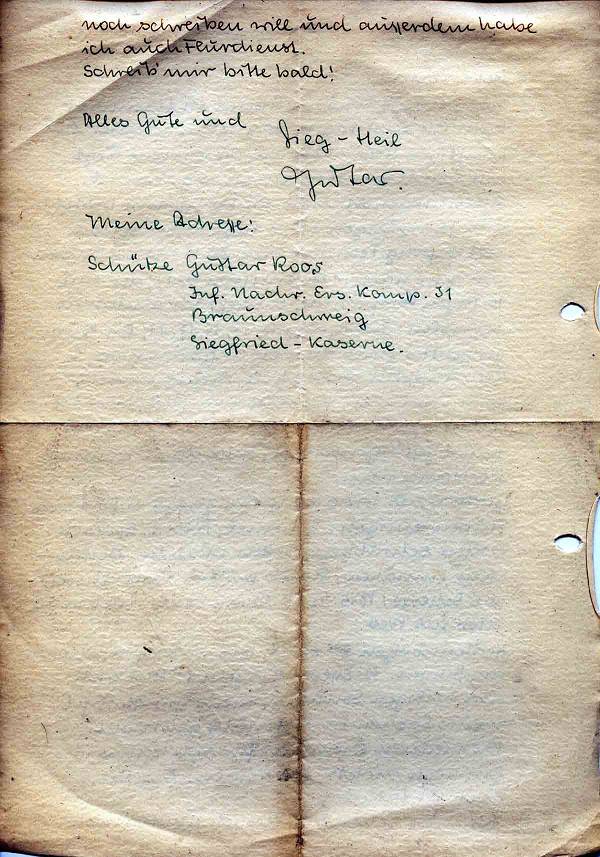 noch schreiben will und ausserdem habe
ich auch Flurdienst.
Schreib' mir bitte bald!
Alles Gute und
Sieg-Heil
Gustav.
Meine Adresse:
Schütze Gustav Roos
Inf. Nachr. Ers. Komp. 31
Braunschweig
Siegfried-Kaserne.